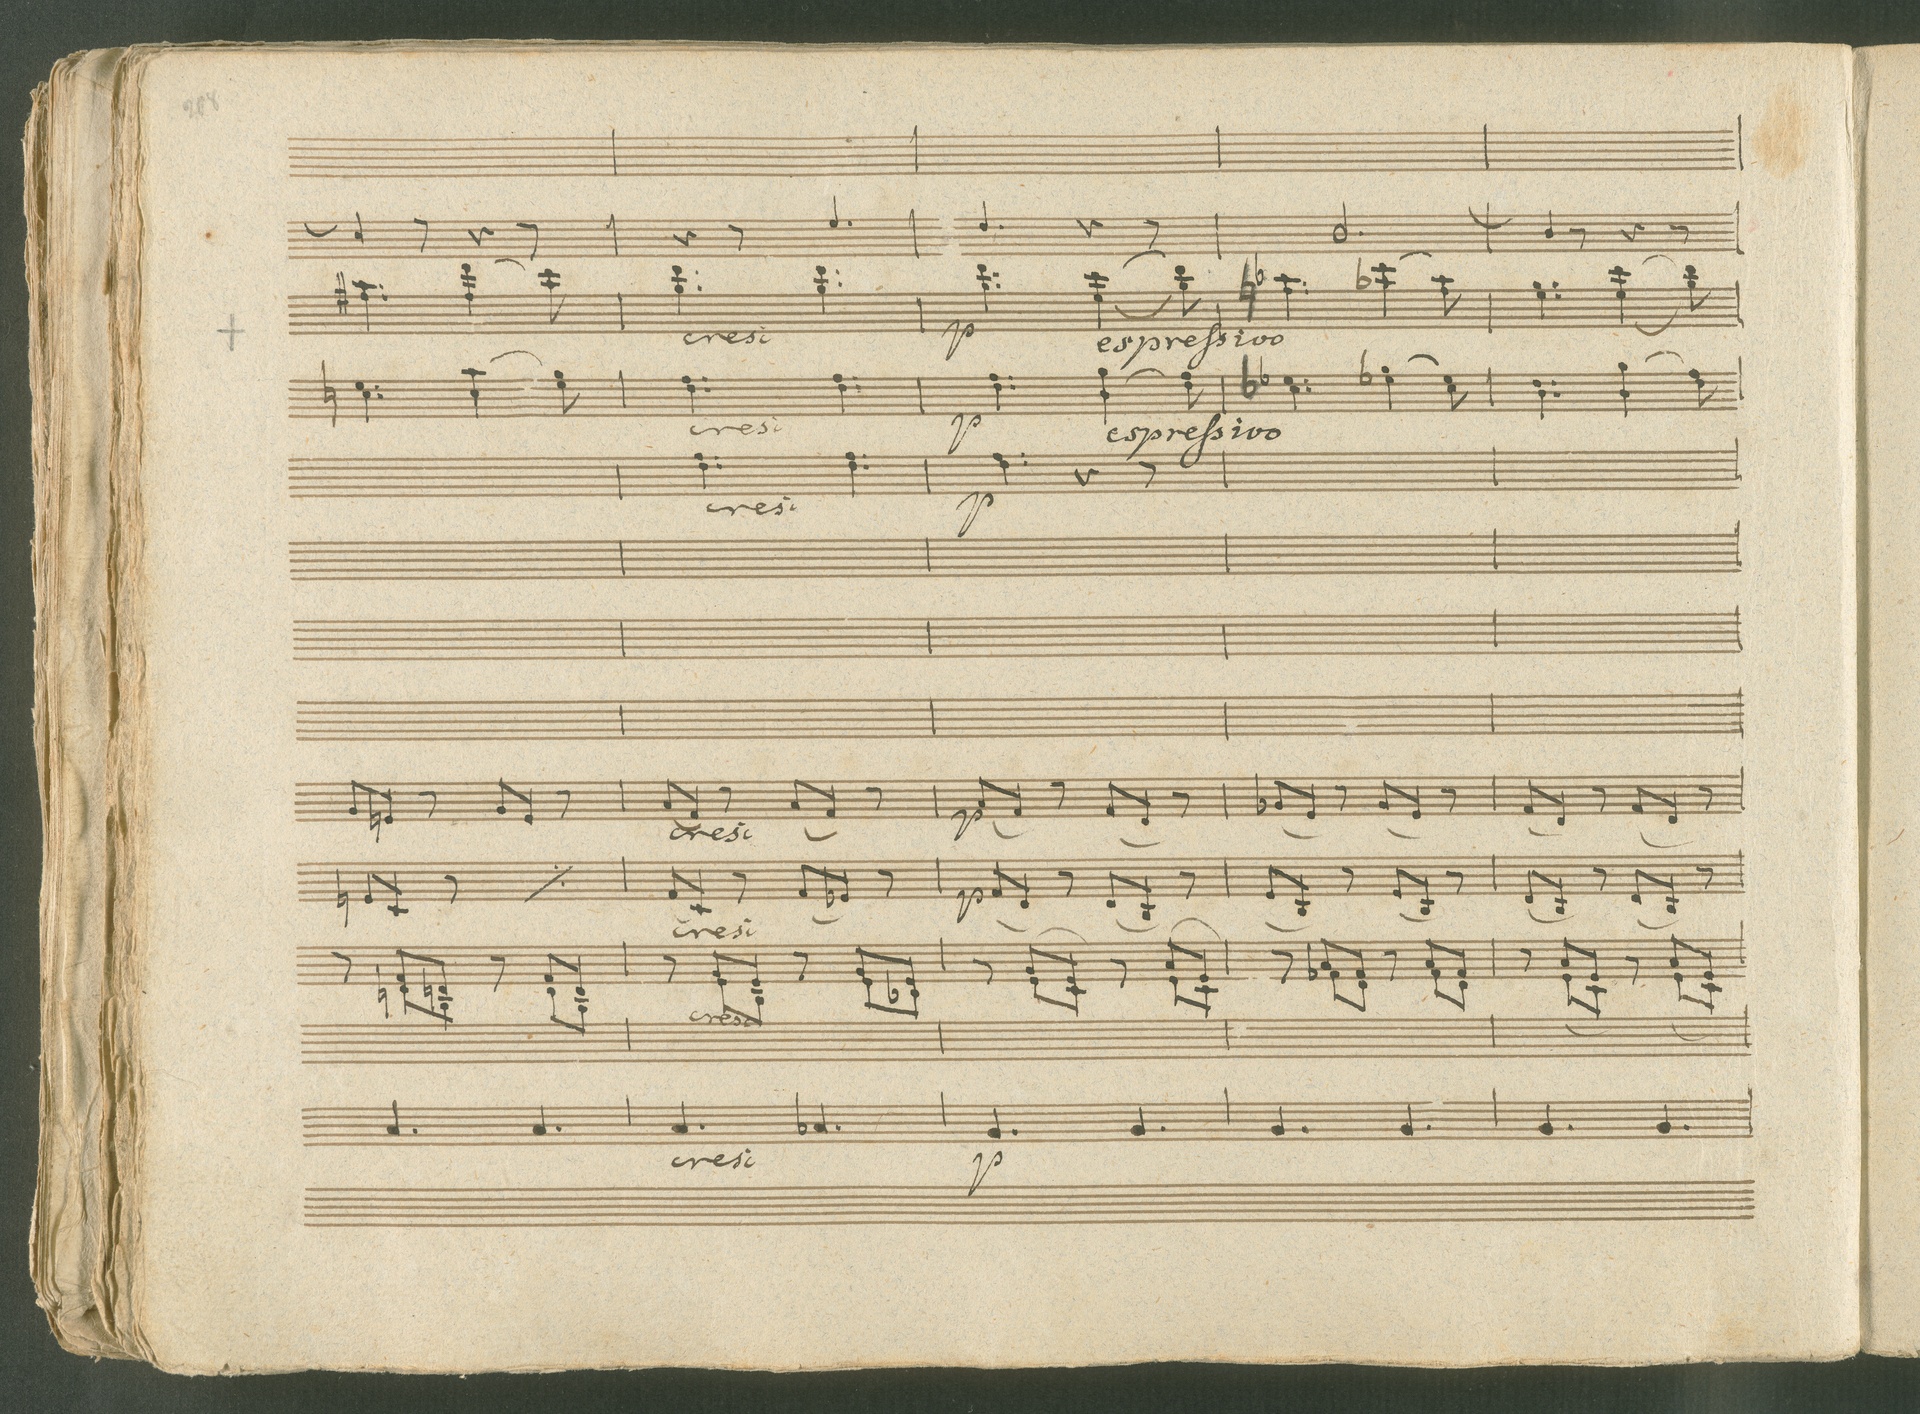 cresc
p espressivo
cresc
p espressivo
cresc p
cresc p
p
cresc
cresc
cresc p